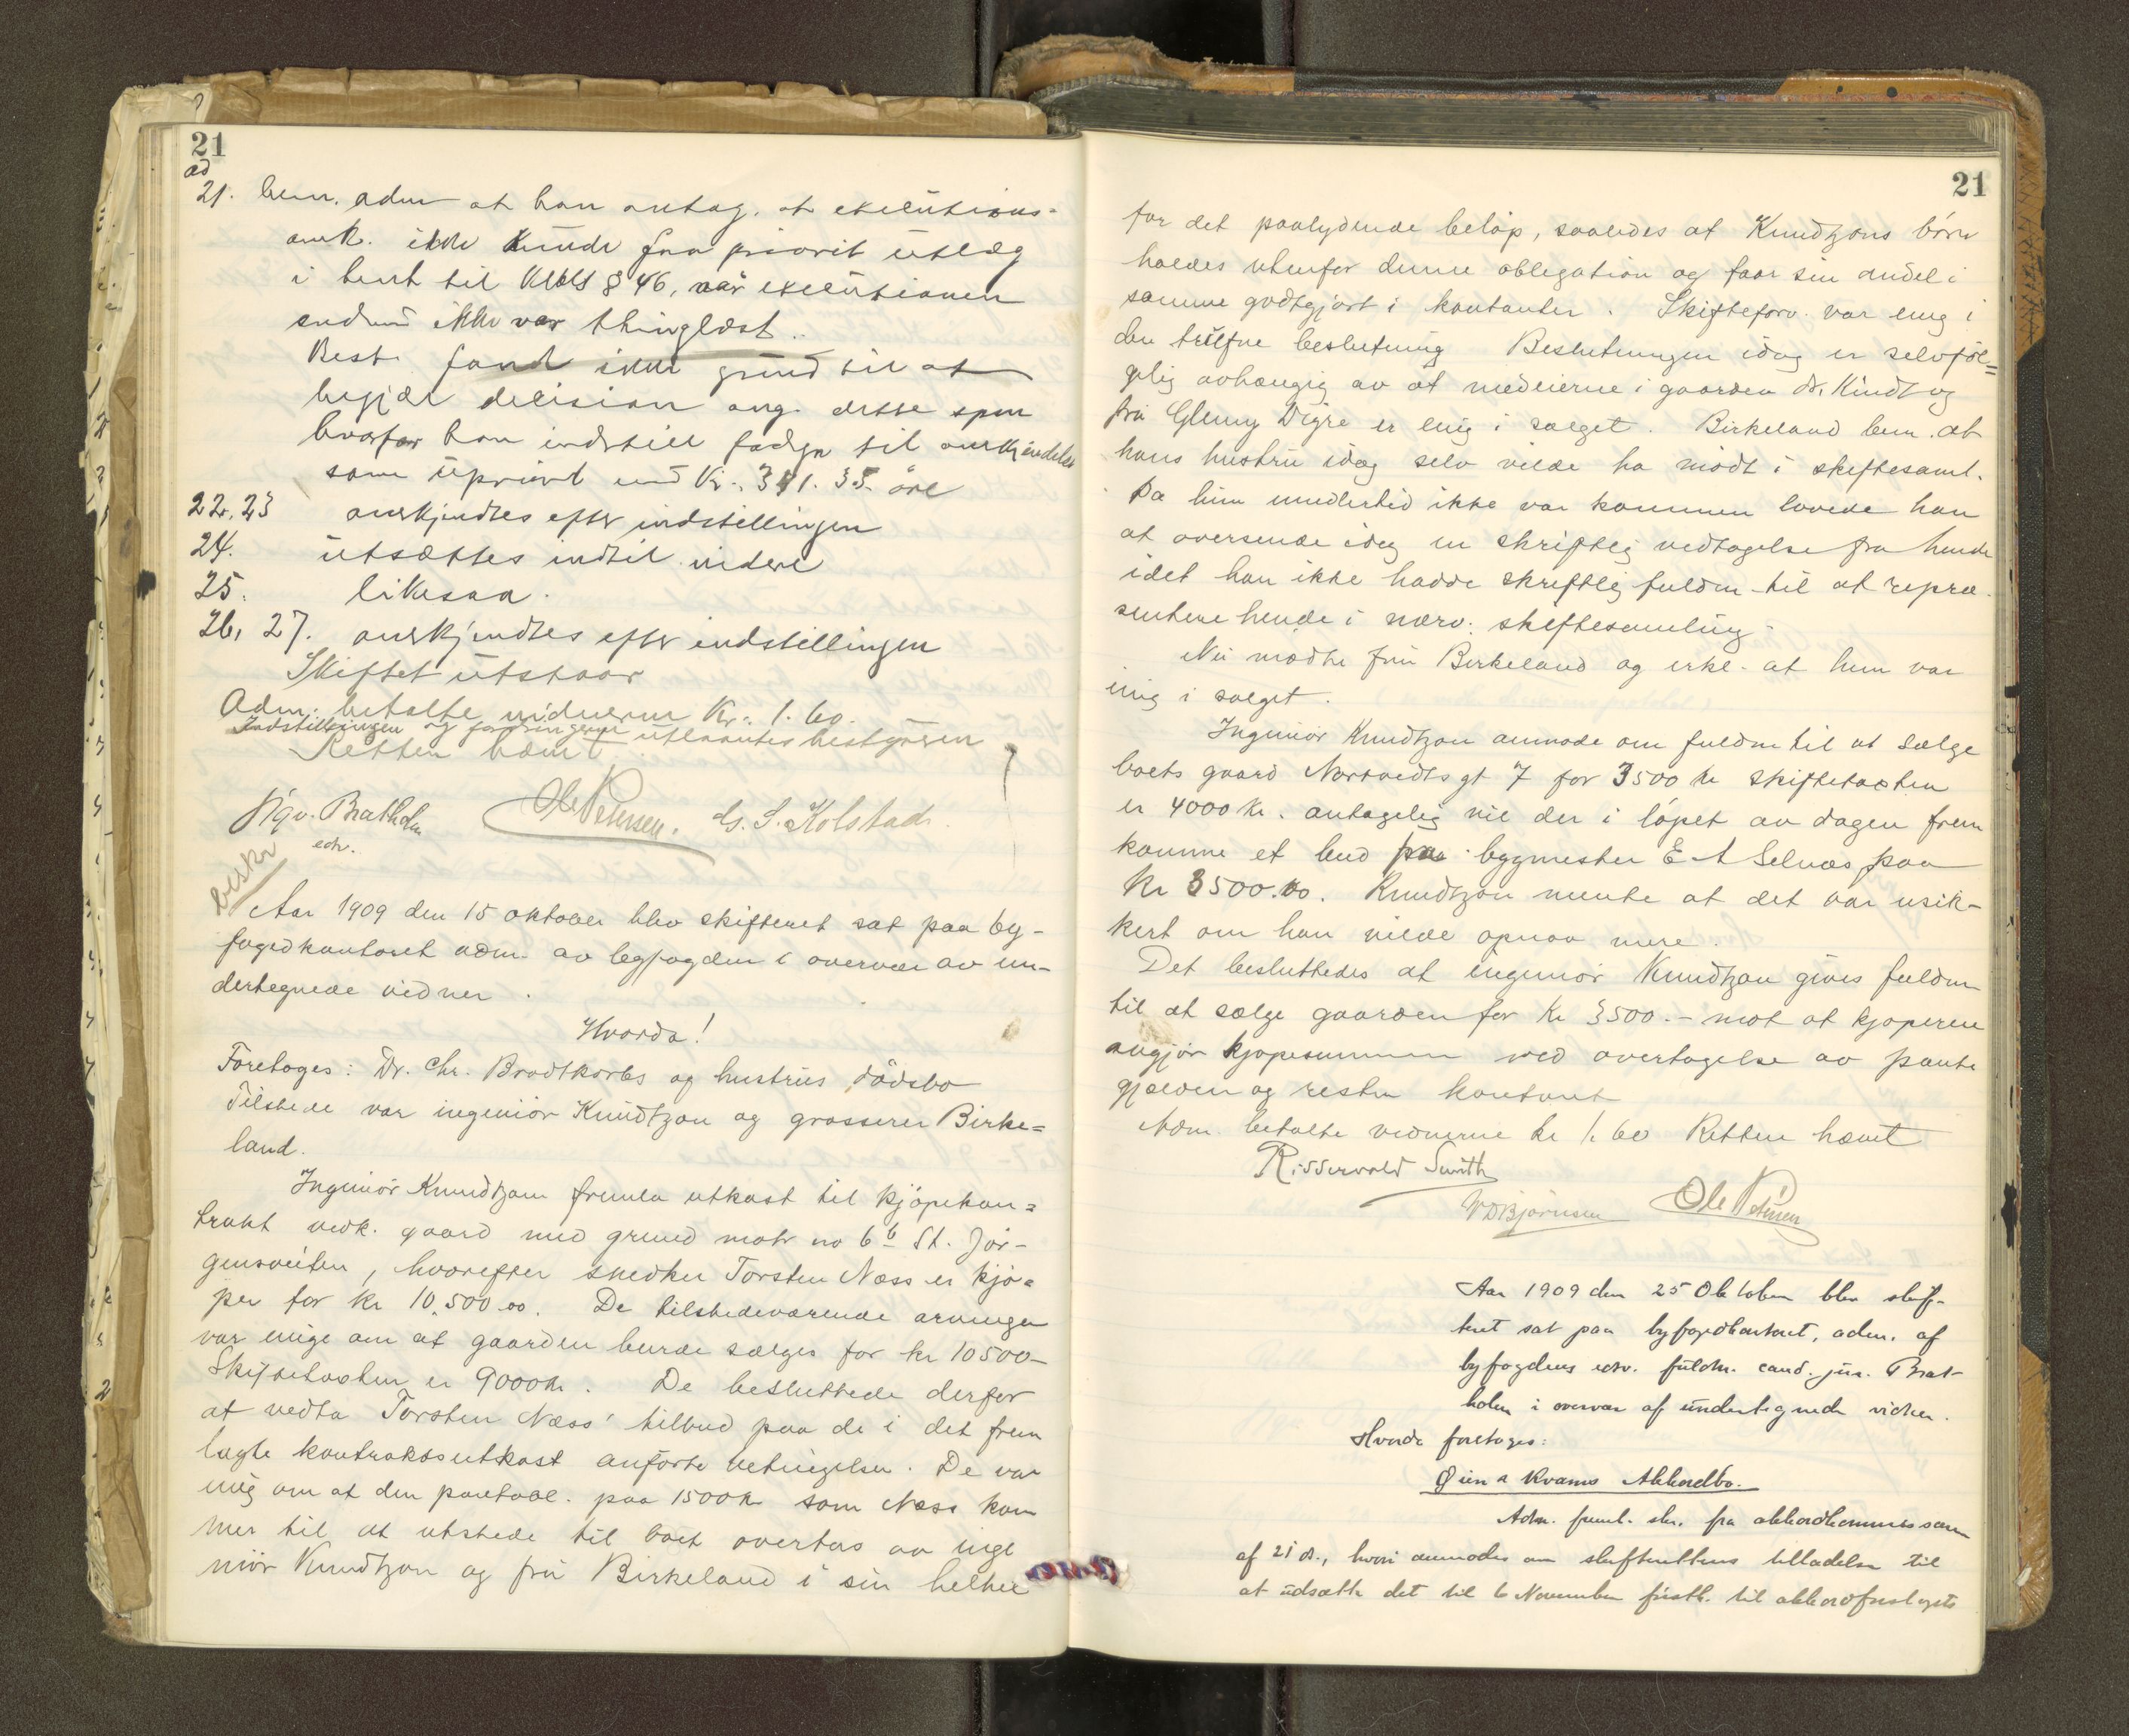 21
ad
21. bem. adm at han antag. at executions-
ank. ikke kunde faa priorit utlæg
i henh til Klols § 46, når executionen
endnu ikke var thinglæst..
Best. fand ikke grund til at
begjær decision ang. dette spm
hvorfor han indstill fodgn til anerkjendelse
som upriort med Kr. 311.35 öre
22, 23 anerkjendtes efter indstillingen
24. utsættes indtil videre
25. likesaa.
26, 27. anerkjendtes efter indstillingen
Skiftet utstaar
Adm. betalte vidnerne Kr. 1.60.
Indstillingen og fordringerne utlaantes bestyreren
Retten hævet
Sigv. Bratholm Ole Petersen. G. S. Kolstad.
edv.
beskr
Aar 1909 den 15 oktober blev skifteret sat paa by-
fogedkontoret adm. av byfogden i overvær av un-
dertegnede vidner.
Hvorda!
Foretoges: Dr. Chr. Brodtkorbs og hustrus dödsbo
Tilstede var ingeniör Knudtzon og grosserer Birke=
land.
Ingeniör Knudtzon fremla utkast til kjöpekon=
trakt vedk. gaard med grund matr no 6b St. Jör-
gensveiten, hvorefter snedker Torsten Næss er kjö=
per for kr 10.500.00. De tilstedeværende arvinger
var enige om at gaarden burde sælges for kr 10500-
Skiftetaxten er 9000 kr. De besluttede derfor
at vedta Torsten Næss' tilbud paa de i det frem
lagte kontraktsutkast anförte betingelser. De var
enig om at den pantobl. paa 1500 kr som Næss kom
mer til at utstede til boet overtas av inge
niör Knudtzon og fru Birkeland i sin helhet
21
for det paalydende belöp, saaledes at Knudtzons börn
holdes utenfor denne obligation og faar sin andel i
samme godtgjort i kontanter. Skifteforv. var enig i
den trufne beslutning Beslutningen idag er selvföl=
gelig avhængig av at medeierne i gaarden dr. Kindt og
fru Glenny Digre er enig i salget. Birkeland bem. at
hans hustru idag selv vilde ha mödt i skiftesaml.
Da hun imidlertid ikke var kommen lovede han
at oversende idag en skriftlig vedtagelse fra hende
idet han ikke hadde skriftlig fuldm til at repræ-
sentere hende i nærv. skiftesamling.
Nu mödte fru Birkeland og erkl. at hun var
enig i salget.
Ingeniör Knudtzon anmode om fuldm til at sælge
boets gaard Nortvedtsgt 7 for 3500 kr skiftetaxten
er 4000 kr. antagelig vil der i löpet av dagen frem
komme et bud fra bygmester E A Selnæs paa
Kr 3500.00. Knudtzon mente at det var usik-
kert om han vilde opnaa mere.
Det besluttedes at ingeniör Knudtzon gives fuldm
til at sælge gaarden for Kr 3500.- mot at kjöperen
avgjör kjöpesummen ved overtagelse av pante
gjælden og resten kontant
Adm. betalte vidnerne kr 1.60 Retten hævet
Risservold Smith
V D Björnsen Ole Petersen
Aar 1909 den 25 Oktober blev skif-
teret sat paa byfogedkontoret, adm. af
byfogdens edv. fuldm. cand. jur. Brat-
holm i overvær af undertegnede vidner.
Hvorda foretoges:
Øien & Kvams Akkordbo.
Adm. freml. skr. fra akkordkommissæren
af 21 ds., hvori anmodes om skifterettens tilladelse til
at udsætte det til 6 November fristh. til akkordforslagets